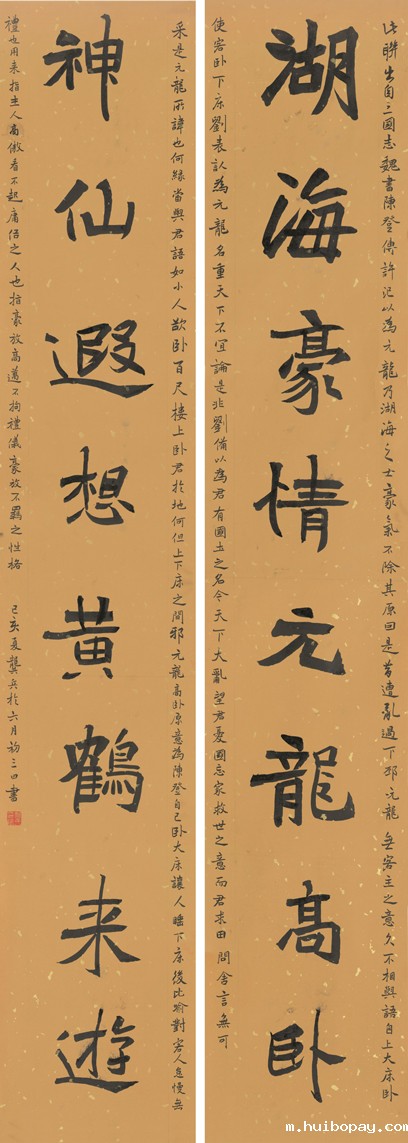 此聯出自三國志魏書陳登傳許汜以為元龍乃湖海之士豪氣不除其原因是昔遭亂過下邳元龍無客主之意久不相與語自上大床卧
湖海豪情元龍高卧
使客卧下床劉表認為元龍名重天下不宜論是非劉備以為君有國士之名今天下大亂望君憂國忘家救世之意而君求田問舍言無可
采是元龍所諱也何緣當與君語如小人欲卧百尺樓上卧君於地何但上下床之間邪元龍高卧原意為陳登自己卧大床讓人睡下床後比喻對客人怠慢無
神仙遐想黃鶴来遊
禮也用来指主人高傲看不起庸俗之人也指豪放高邁不拘禮儀豪放不羈之性格
己亥夏龔兵於六月初三日書
m.huibopay.com